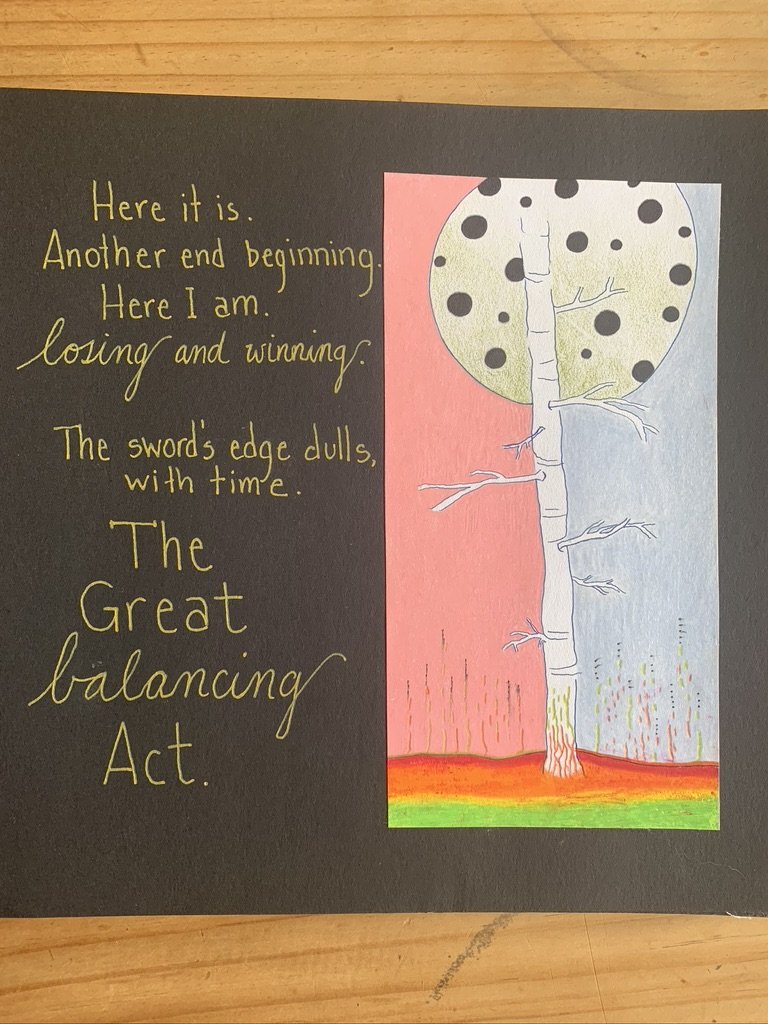 Here it is.
Another end beginning.
Here I am.
losing and winning.
The sword's edge dulls,
with time.
The
Great
balancing
Act.